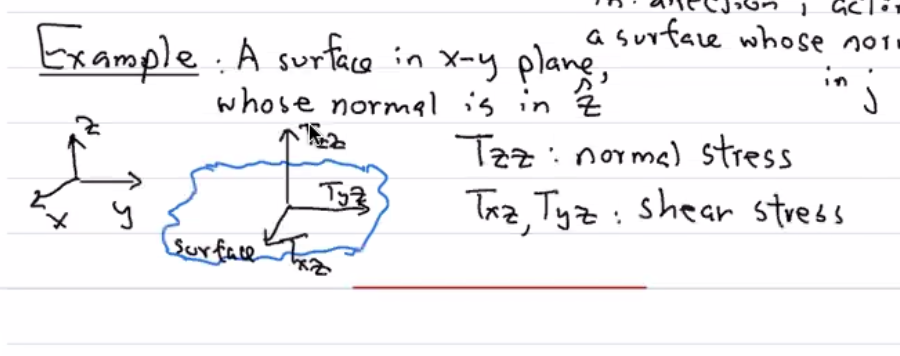 in direction i, acto
a surface whose nor
in j
Example: A surface in x-y plane,
whose normal is in ẑ
z
x
y
Tzz
Tyz
surface
Txz
Tzz : normal stress
Txz, Tyz : shear stress